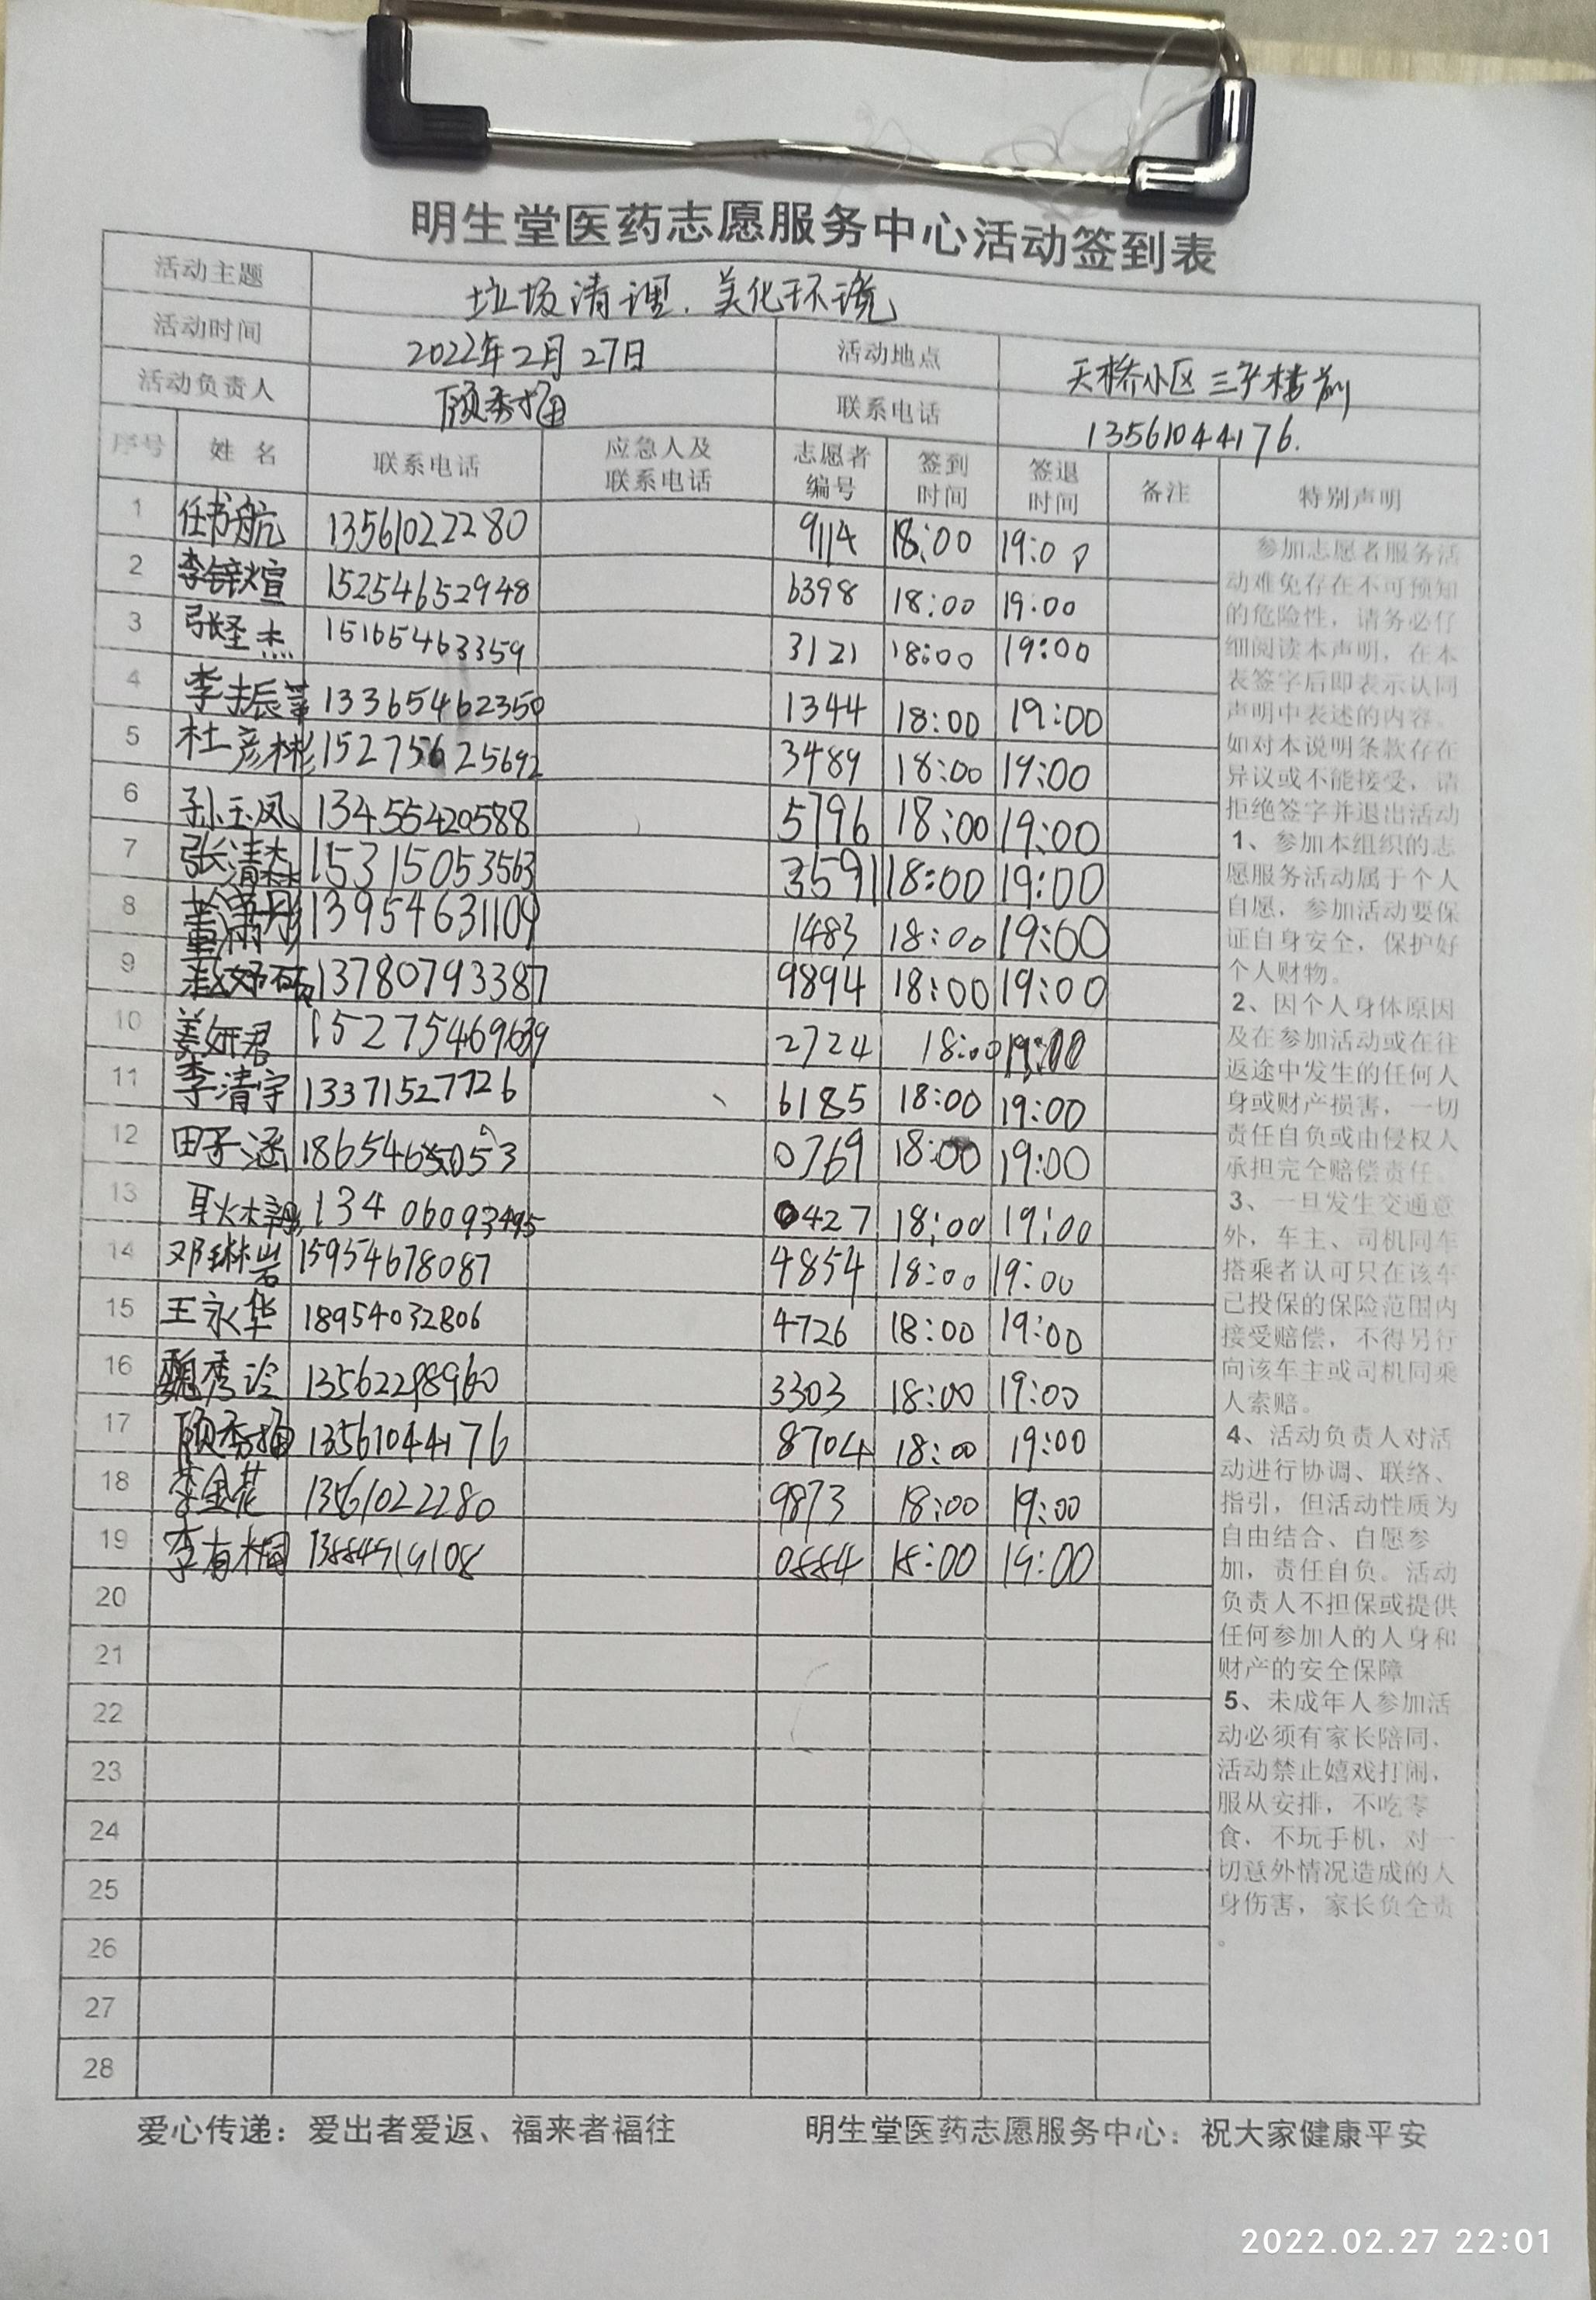 明生堂医药志愿服务中心活动签到表
活动主题 垃圾清理.美化环境
活动时间 2022年2月27日 活动地点 天桥小区三号楼前
活动负责人 顾秀梅 联系电话 13561044176.
序号 姓名 联系电话 应急人及联系电话 志愿者编号 签到时间 签退时间 备注 特别声明
1 任书航 13561022280 9114 18:00 19:00
2 李锌煊 15254652948 6398 18:00 19:00
3 张圣杰 15165463359 3121 18:00 19:00
4 李振 13365462350 1344 18:00 19:00
5 杜彦彬 15275625692 3489 18:00 19:00
6 孙玉凤 13455420588 5796 18:00 19:00
7 张清森 15315053563 3591 18:00 19:00
8 董 13954631109 1483 18:00 19:00
9 13780793387 9894 18:00 19:00
10 姜妍君 15275469639 2724 18:00 19:00
11 李清宇 13371527726 6185 18:00 19:00
12 田子涵 18654655053 0769 18:00 19:00
13 耿 13406093495 0427 18:00 19:00
14 邓琳岩 15954678087 4854 18:00 19:00
15 王永华 18954032806 4726 18:00 19:00
16 魏秀玲 13562298960 3303 18:00 19:00
17 顾秀梅 13561044176 8704 18:00 19:00
18 李金花 13561022280 9873 18:00 19:00
19 李有 0884 18:00 19:00
20
21
22
23
24
25
26
27
28
参加志愿者服务活
动难免存在不可预知
的危险性，请务必仔
细阅读本声明，在本
表签字后即表示认同
声明中表述的内容。
如对本说明条款存在
异议或不能接受，请
拒绝签字并退出活动
1、参加本组织的志
愿服务活动属于个人
自愿，参加活动要保
证自身安全，保护好
个人财物。
2、因个人身体原因
及在参加活动或在往
返途中发生的任何人
身或财产损害，一切
责任自负或由侵权人
承担完全赔偿责任。
3、一旦发生交通意
外，车主、司机同车
搭乘者认可只在该车
已投保的保险范围内
接受赔偿，不得另行
向该车主或司机同乘
人索赔。
4、活动负责人对活
动进行协调、联络、
指引，但活动性质为
自由结合、自愿参
加，责任自负。活动
负责人不担保或提供
任何参加人的人身和
财产的安全保障
5、未成年人参加活
动必须有家长陪同，
活动禁止嬉戏打闹，
服从安排，不吃零
食，不玩手机，对一
切意外情况造成的人
身伤害，家长负全责
。
爱心传递：爱出者爱返、福来者福往 明生堂医药志愿服务中心：祝大家健康平安
2022.02.27 22:01